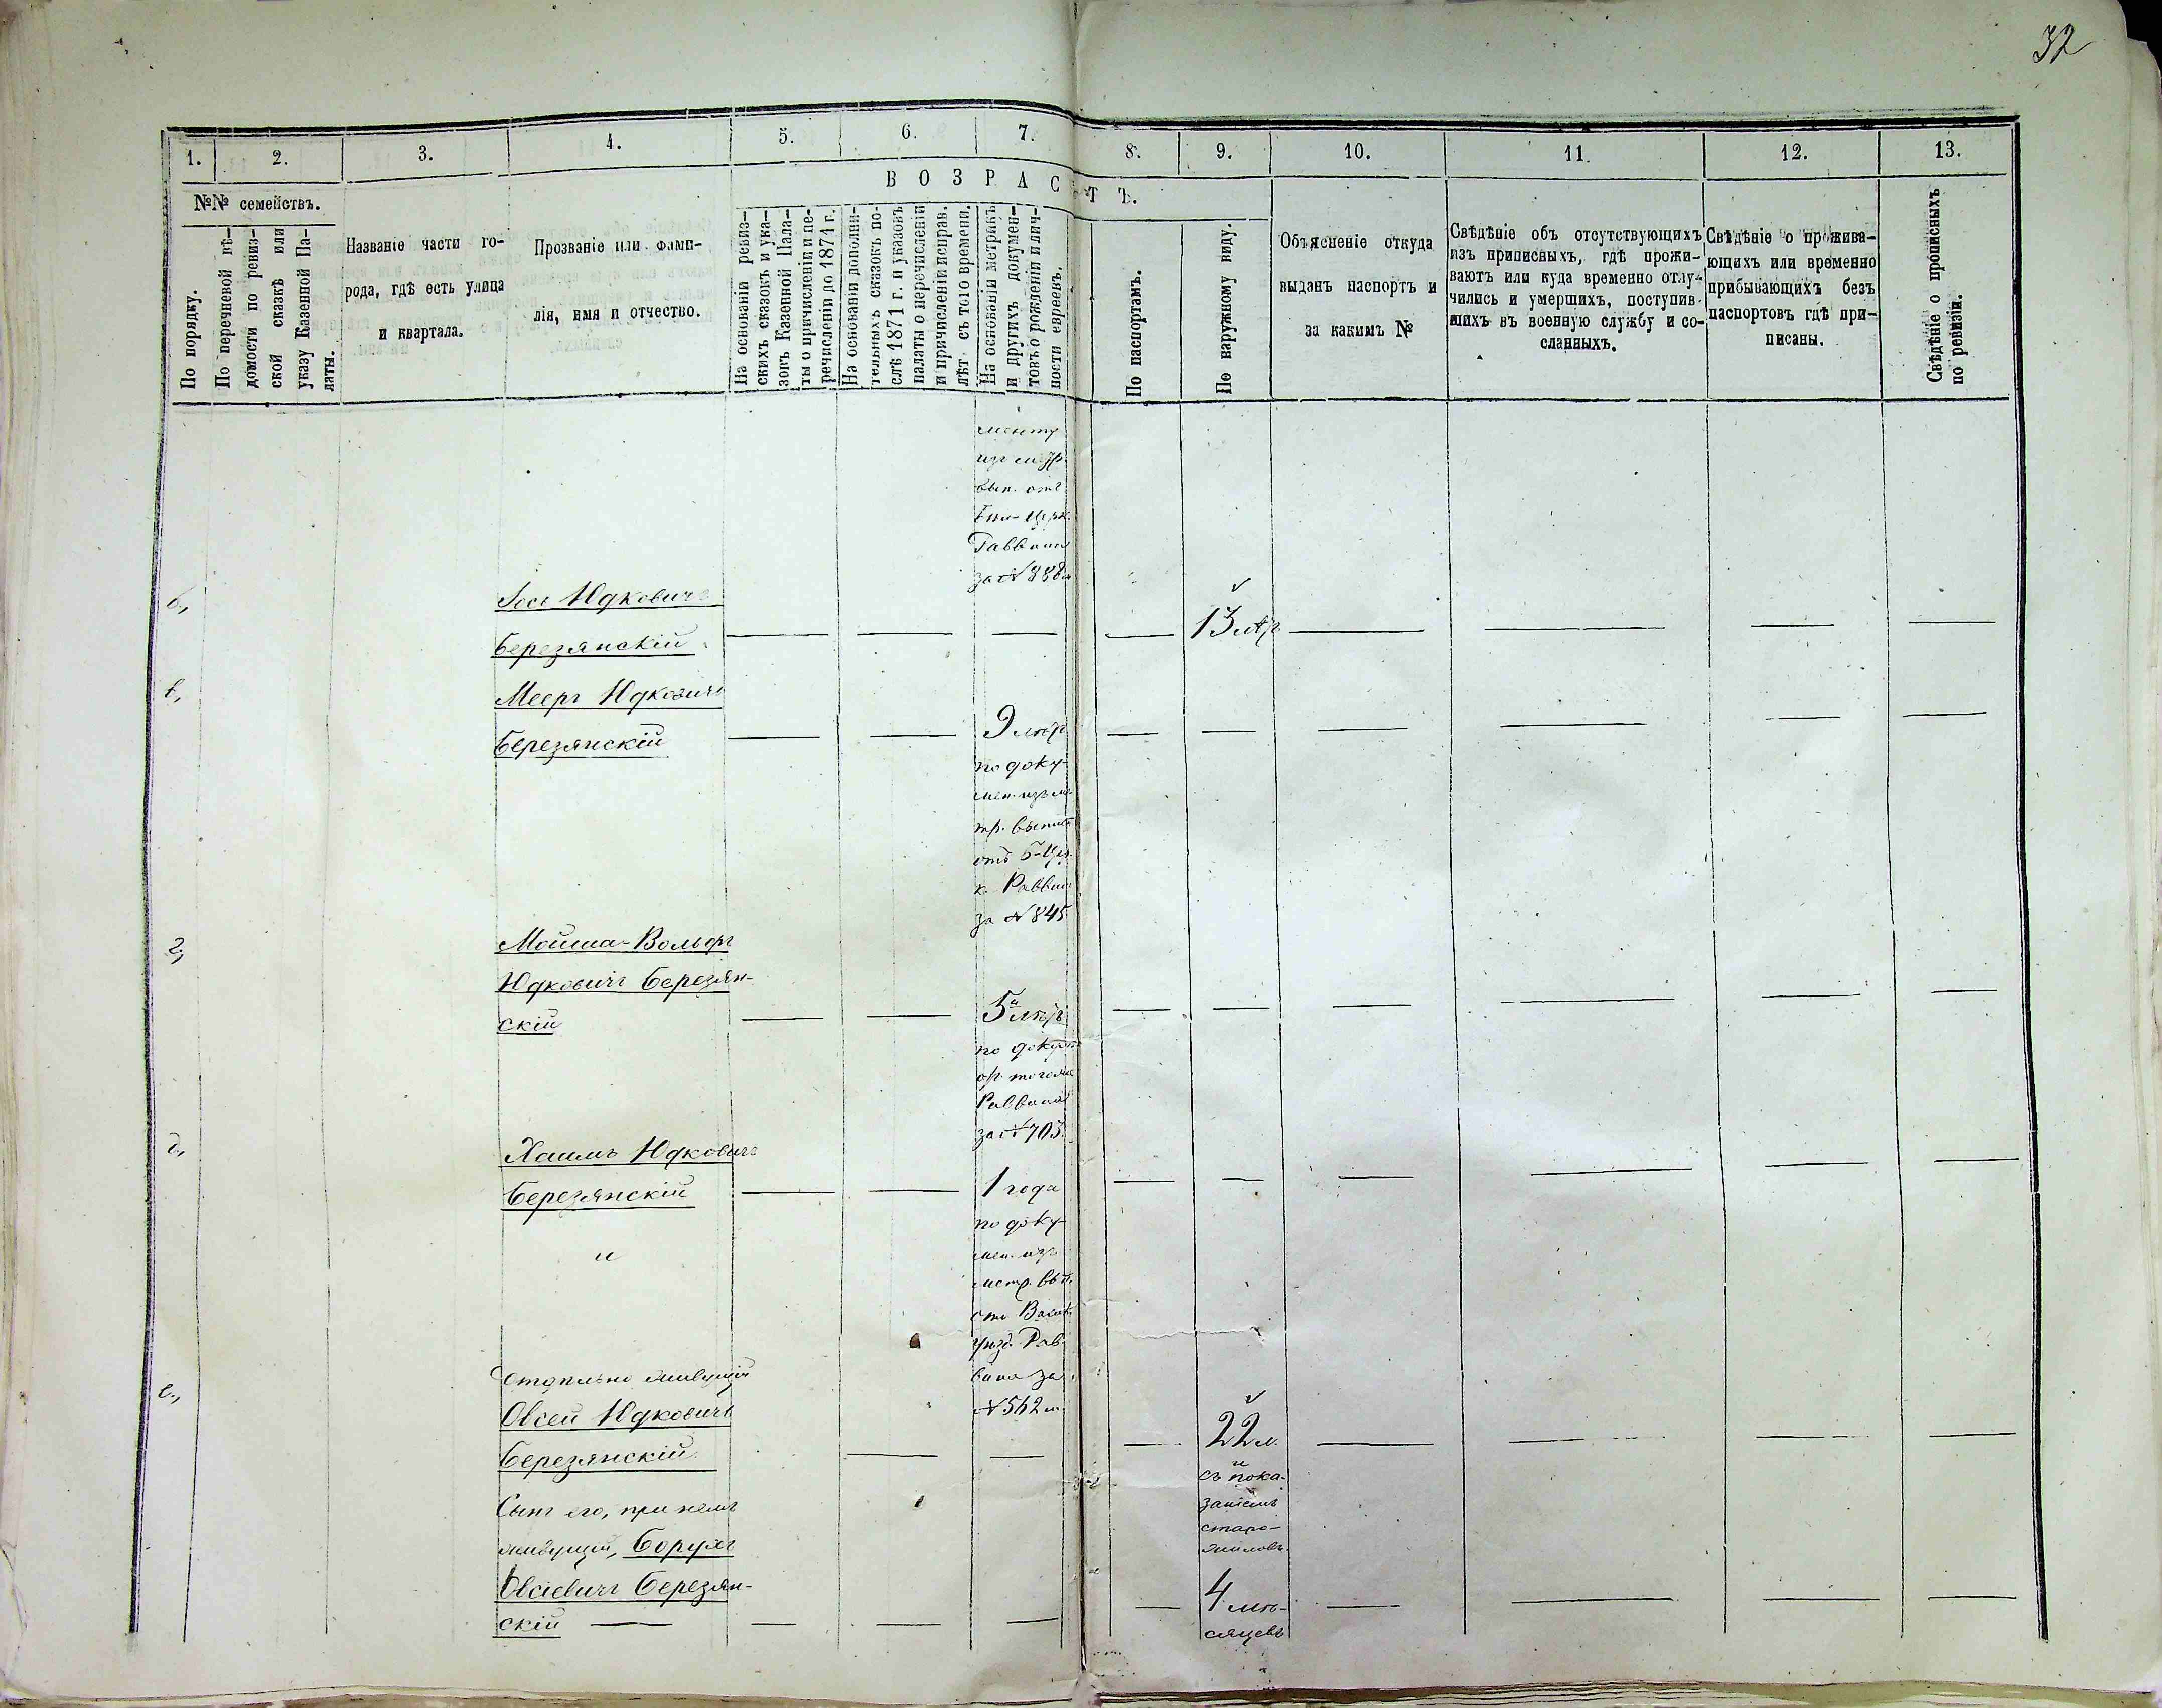 32
1. 2. 3. 4. 5. 6. 7. 8. 9. 10. 11. 12. 13.
В О З Р А С Т Ъ.
№№ семействъ.
По порядку.
По перечневой вѣ-
домости по ревиз-
ской сказкѣ или
указу Казенной Па-
латы.
Названіе части го-
рода, гдѣ есть улица
и квартала.
Прозваніе или фами-
лія, имя и отчество.
На основаніи ревиз-
скихъ сказокъ и ука-
зовъ Казенной Пала-
ты о причисленіи и пе-
речисленіи до 1871 г.
На основаніи дополни-
тельныхъ сказокъ по-
слѣ 1871 г. и указовъ
палаты о перечисленіи
и причисленіи исправ.
лѣт съ того времени.
На основаніи метрикъ
и другихъ докумен-
товъ о рожденіи и лич-
ности евреевъ.
По паспортамъ.
По наружному виду.
Объясненіе откуда
выданъ паспортъ и
за какимъ №
Свѣдѣніе объ отсутствующихъ
изъ приписныхъ, гдѣ прожи-
ваютъ или куда временно отлу-
чились и умершихъ, поступив-
шихъ въ военную службу и со-
сланныхъ.
Свѣдѣніе о прожива-
ющихъ или временно
прибывающихъ безъ
паспортовъ гдѣ при-
писаны.
Свѣдѣніе о прописныхъ
по ревизіи.
менту
вып. отъ
Раввина
за №
б,
Юдковичъ
Березянскій
13 лѣтъ
в,
Мееръ Юдковичъ
Березянскій
9 лѣтъ
по доку-
мен. изъ ме-
тр. выпис
отъ Б-Цер.
к. Раввин
за № 845
г,
Мойша-Вольфъ
Юдковичъ Березян-
скій
5 лѣтъ
по докум
того же
Раввина
за № 703.
д,
Хаимъ Юдковичъ
Березянскій
и
1 года
по доку-
мен. изъ
метр. вып.
отъ Васил.
уѣзд. Рав-
вина за
№ 562 м.
е,
Отдѣльно живущій
Овсей Юдковичъ
Березянскій
22 л.
съ пока-
заніемъ
старо-
жиловъ.
Сынъ его, при немъ
живущій, Борухъ
Овсіевичъ Березян-
скій
4 мѣ-
сяцевъ